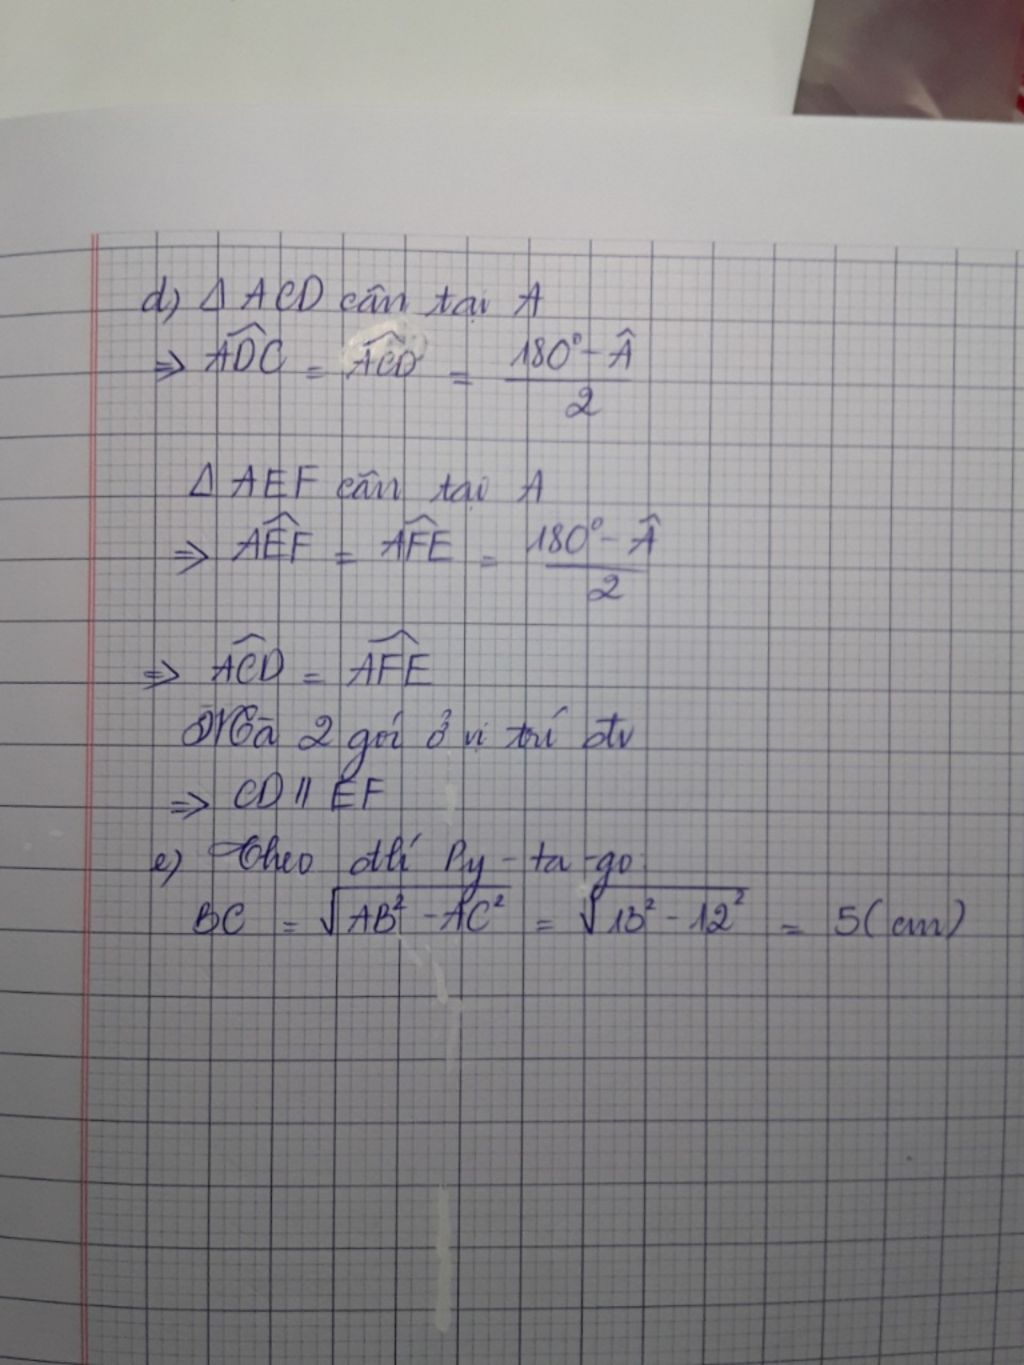 d) Δ ACD cân tại A
⇒ \widehat{ADC} = \widehat{ACD} = \frac{180° - Â}{2}
Δ AEF cân tại A
⇒ \widehat{AEF} = \widehat{AFE} = \frac{180° - Â}{2}
⇒ \widehat{ACD} = \widehat{AFE}
Mà 2 góí ở vị trí đtv
⇒ CD // EF
e) Theo đlí Py-ta-go
BC = \sqrt{AB² - AC²} = \sqrt{13² - 12²} = 5 (cm)